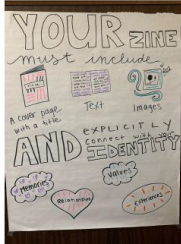 YOUR ZINE
must include
A cover page
with a title
Text
Images
AND EXPLICITLY
connect with your
IDENTITY
Memories
Relationships
Values
Experiences